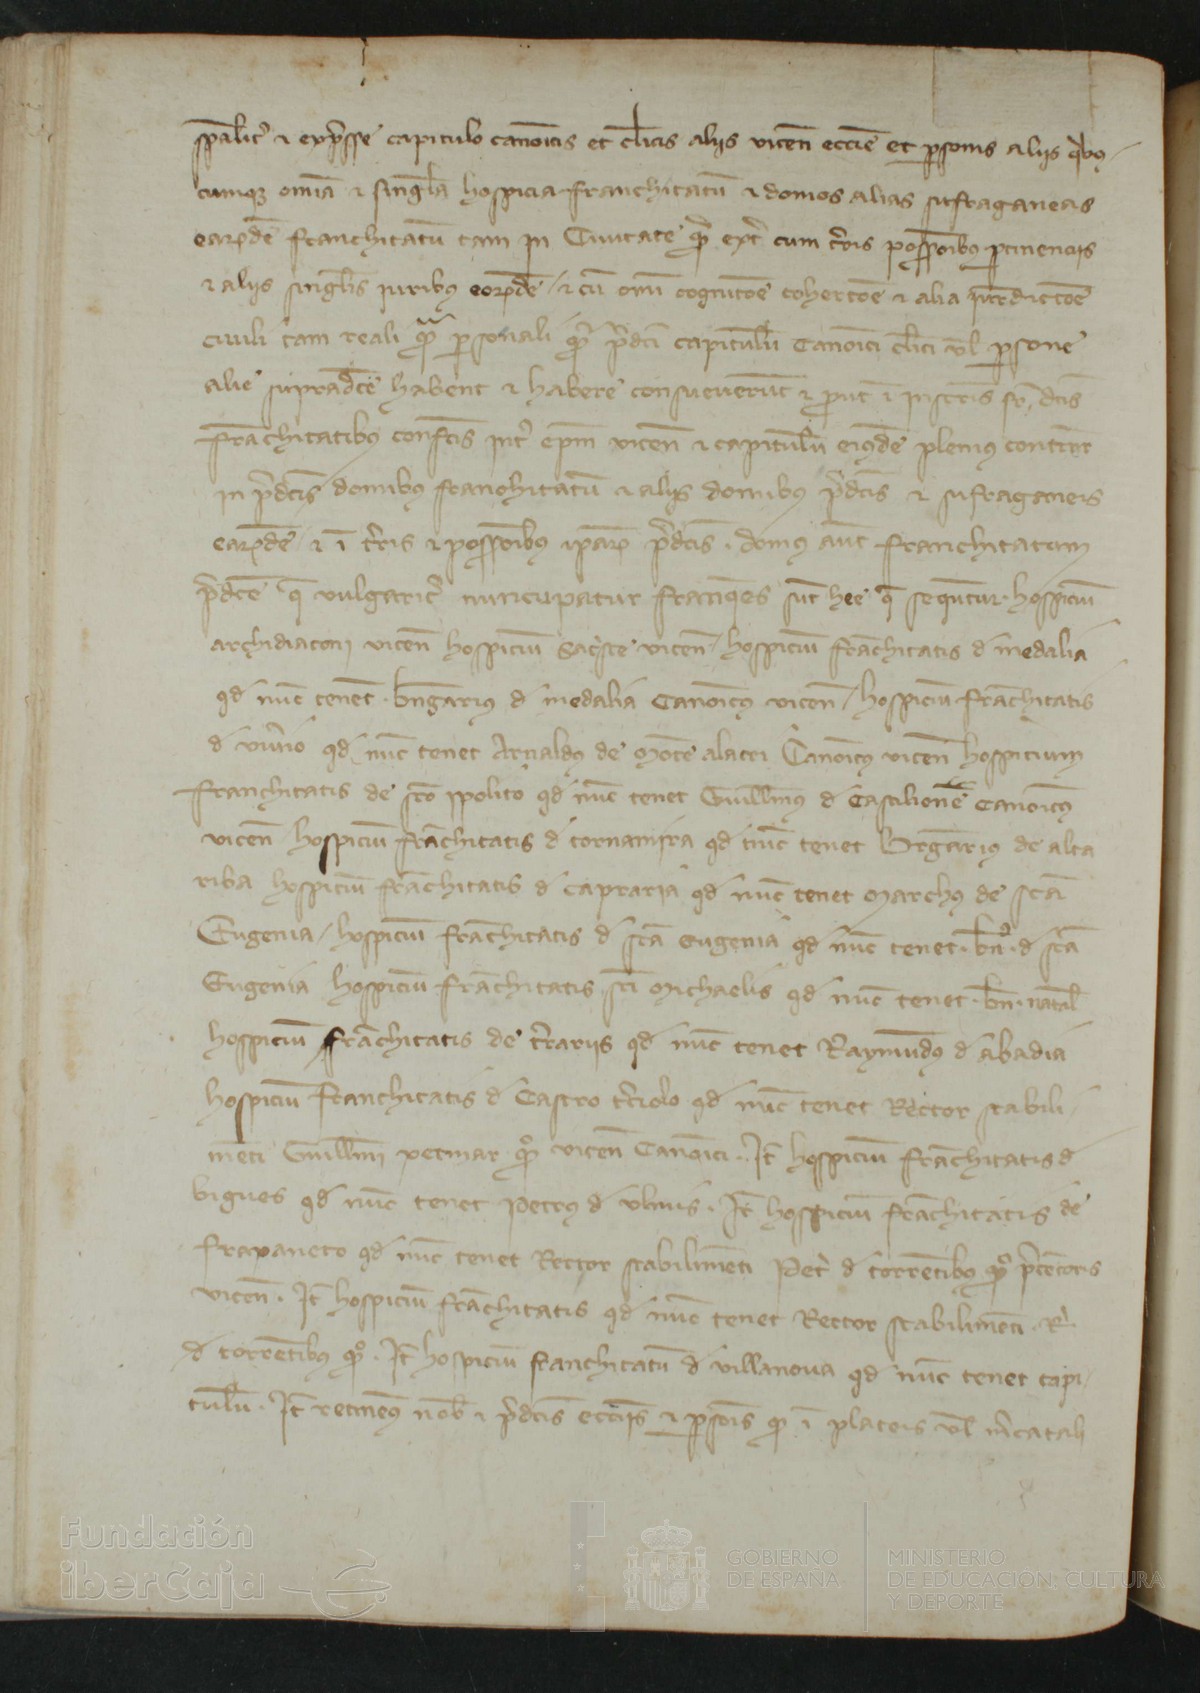 spalit̄ ⁊ exp̄sse capitulo canoīcis et cl̄icis aliis vicen̄ ecc̄ie et ꝑsonis aliis q̄ibꝯ
cumqꝫ om̄ia ⁊ singl̄a hospicia franchitatū ⁊ domos alias sufraganeas
earūdē franchitatū tam in Ciuitate q̄ꝫ ext̄ cum t̄ris possessioībus ꝑtinenciis
⁊ aliis singl̄is iuribꝯ eorūdē / ⁊ cū om̄i cognitōe cohertōe ⁊ alia iurisdictōe
ciuili tam reali q̄ꝫ ꝑsonali q̄ꝫ p̄dc̄i capitulū Canoīci cl̄ici vl̄ ꝑsone
alie sup̄adc̄e habent ⁊ habere consueuerūt ⁊ ꝓut ī instr̄is dc̄is
franchitatibꝯ confc̄is int̄ ep̄m vicen̄ ⁊ capitulū eiusdē plenius contīet
in p̄dc̄is domibꝯ franchitatū ⁊ aliis domibꝯ p̄dc̄is ⁊ sufraganeis
earūdē ⁊ ī t̄ris ⁊ possessioībus iparū p̄dc̄is . domꝯ aūt franchitatum
p̄dc̄e q̄ vulgarit̄ nuncupatur franq̄es sūt hee q̄ sequntur . hospiciū
archidiaconi vicen̄ hospiciū sac̄ste vicen̄ / hospiciū frāchitatis d̄ medalia
qd̄ nūc tenet . bn̄garius d̄ medalia Canoīcꝯ vicen̄ / hospiciū frāchitatis
d̄ qd̄ nūc tenet Arnaldꝯ de Mōte alacri Canoīcꝯ vicen̄ hospicium
franchitatis de sc̄o ipolito qd̄ nūc tenet Guill̄mꝯ d̄ Castilione Canoīcꝯ
vicen̄ hospiciū frāchitatis d̄ tornamira qd̄ nūc tenet Br̄gariꝯ de alta
riba hospiciū frāchitatis d̄ capraria qd̄ nūc tenet Marchꝯ de sc̄a
Eugenia / hospiciū frāchitatis d̄ sc̄a eugenia qd̄ nūc tenet . bn̄ . d̄ sc̄a
Eugenia hospiciū frāchitatis sc̄i Michaelis qd̄ nūc tenet . bn̄ . natal̄
hospiciū frāchitatis de t̄rariis qd̄ nūc tenet Raymūdꝯ d̄ abadia
hospiciū franchitatis d̄ Castro t̄ciolo qd̄ nūc tenet Rector stabili
mēti Guill̄mi petmar qᵒ vicen̄ Canoīci . . It̄ hospiciū frāchitatis d̄
bigues qd̄ nūc tenet Petrꝯ d̄ vlmis . It̄ hospiciū frāchitatis de
frapaneto qd̄ nūc tenet Rector stabilimēti Pet̄ d̄ torrētibꝯ qᵒ p̄cētoris
vicen̄ . It̄ hospiciū frāchitatis qd̄ nūc tenet Rector stabilimēti . R̄ .
d̄ torrētibus qᵒ . It̄ hospiciū franchitatū d̄ villanoua qd̄ nūc tenet capi
tulū . It̄ retinemꝯ nob̄ ⁊ p̄dc̄is ecc̄iis ⁊ ꝑsoīs ī plateis vl̄ m̄catali
Fundación
iberCaja
GOBIERNO
DE ESPAÑA
MINISTERIO
DE EDUCACIÓN, CULTURA
Y DEPORTE